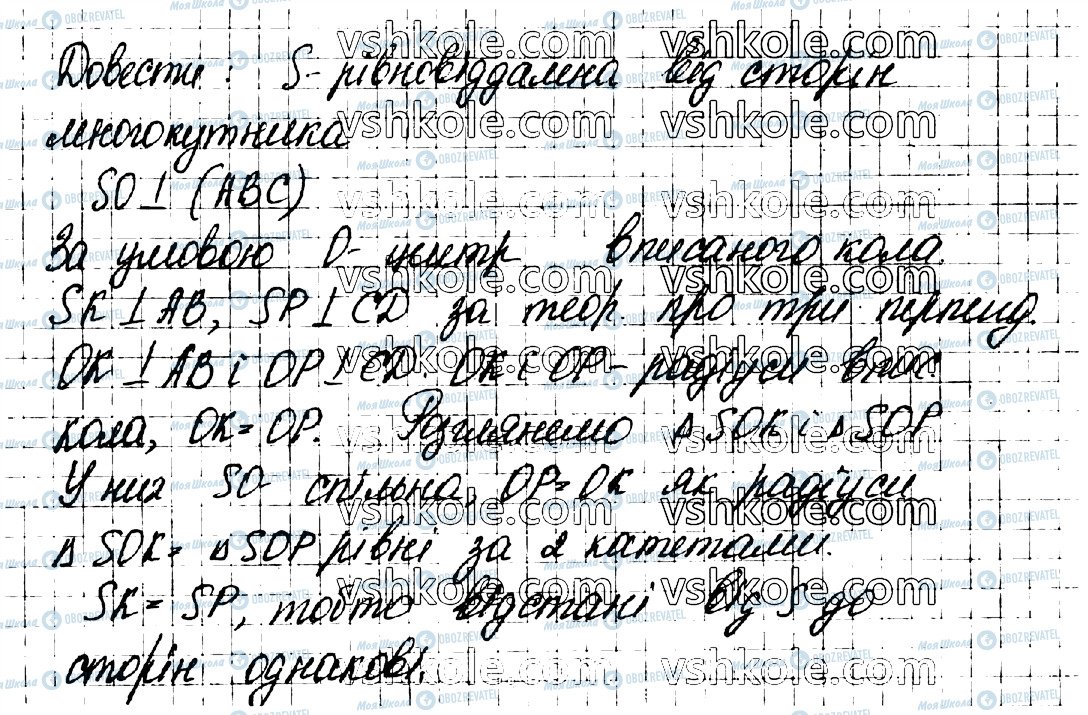 Довести: S- рівновіддалена від сторін
многокутника
SO⊥ (ABC)
За умовою O- центр вписаного кола.
SK ⊥ AB, SP ⊥ CD за теор. про три перпенд.
OK ⊥ AB і OP ⊥ CD. OK і OP - радіуси впис.
кола, OK = OP. Розглянемо ΔSOK і ΔSOP
У них SO- спільна, OP=OK як радіуси
ΔSOK= ΔSOP рівні за 2 катетами.
SK= SP, тобто відстані від S до
сторін однакові.
vshkole.com
Моя Школа
OBOZREVATEL